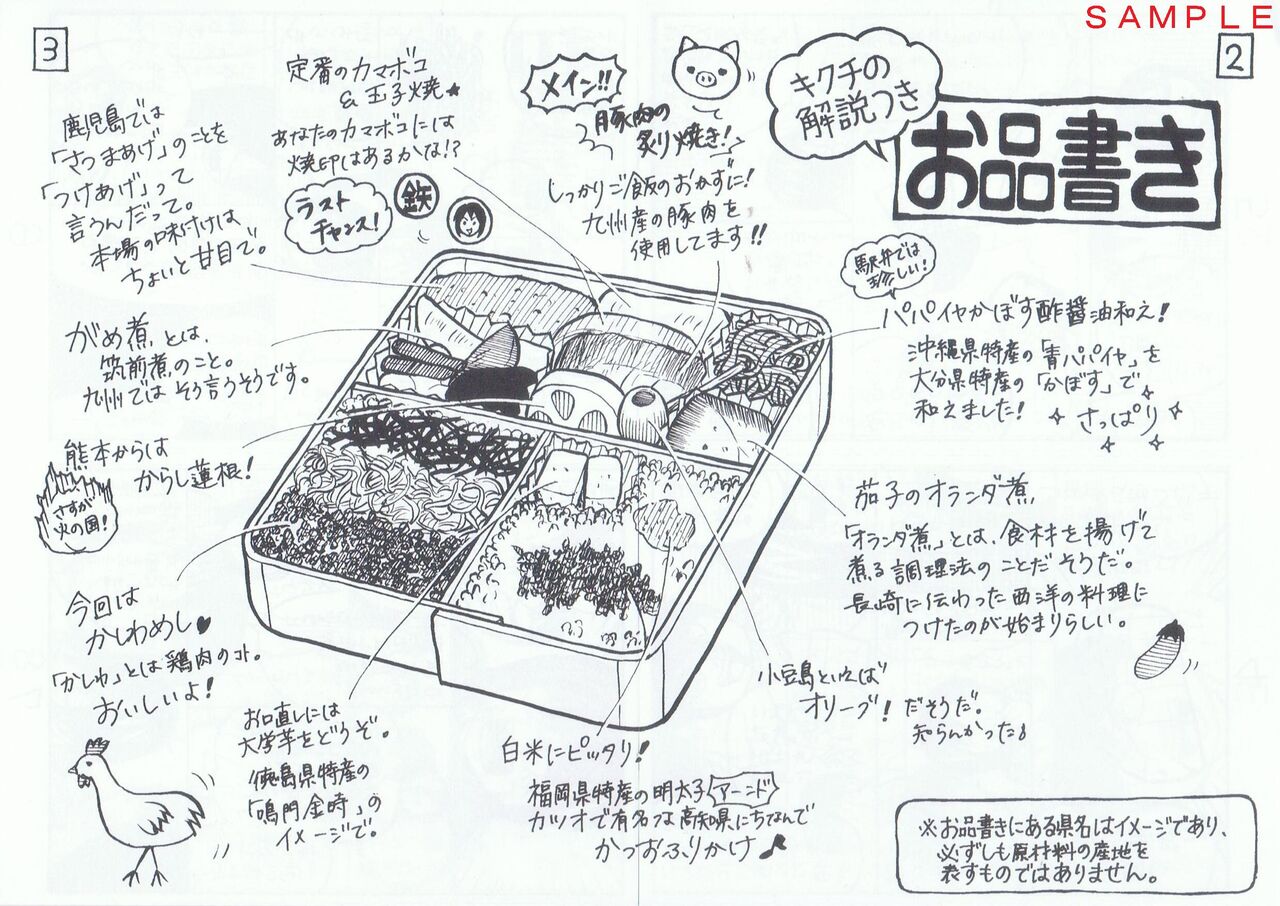 SAMPLE
2
キクチの
解説つき
お品書き
メイン!!
豚肉の
炙り焼き!
しっかりご飯のおかずに!
九州産の豚肉を
使用してます!!
駅弁では
珍しい!
パパイヤかぼす酢醤油和え!
沖縄県特産の「青パパイヤ」を
大分県特産の「かぼす」で
和えました!
さっぱり
茄子のオランダ煮、
「オランダ煮」とは、食材を揚げて
煮る調理法のことだそうだ。
長崎に伝わった西洋の料理に
つけたのが始まりらしい。
小豆島といえば
オリーブ!だそうだ。
知らんかった♪
※お品書きにある県名はイメージであり、
必ずしも原材料の産地を
表すものではありません。
3
定番のカマボコ
&玉子焼★
あなたのカマボコには
焼印はあるかな!?
ラスト
チャンス!
鉄
鹿児島では
「さつまあげ」のことを
「つけあげ」って
言うんだって。
本場の味付けは
ちょいと甘目で。
がめ煮、とは、
筑前煮のこと。
九州ではそう言うそうです。
熊本からは
からし蓮根!
さすが
火の国!
今回は
かしわめし♥
「かしわ」とは鶏肉のコト。
おいしいよ!
お口直しには
大学芋をどうぞ。
徳島県特産の
「鳴門金時」の
イメージで。
白米にピッタリ!
福岡県特産の明太子アーンド
カツオで有名な高知県にちなんで
かつおふりかけ♪